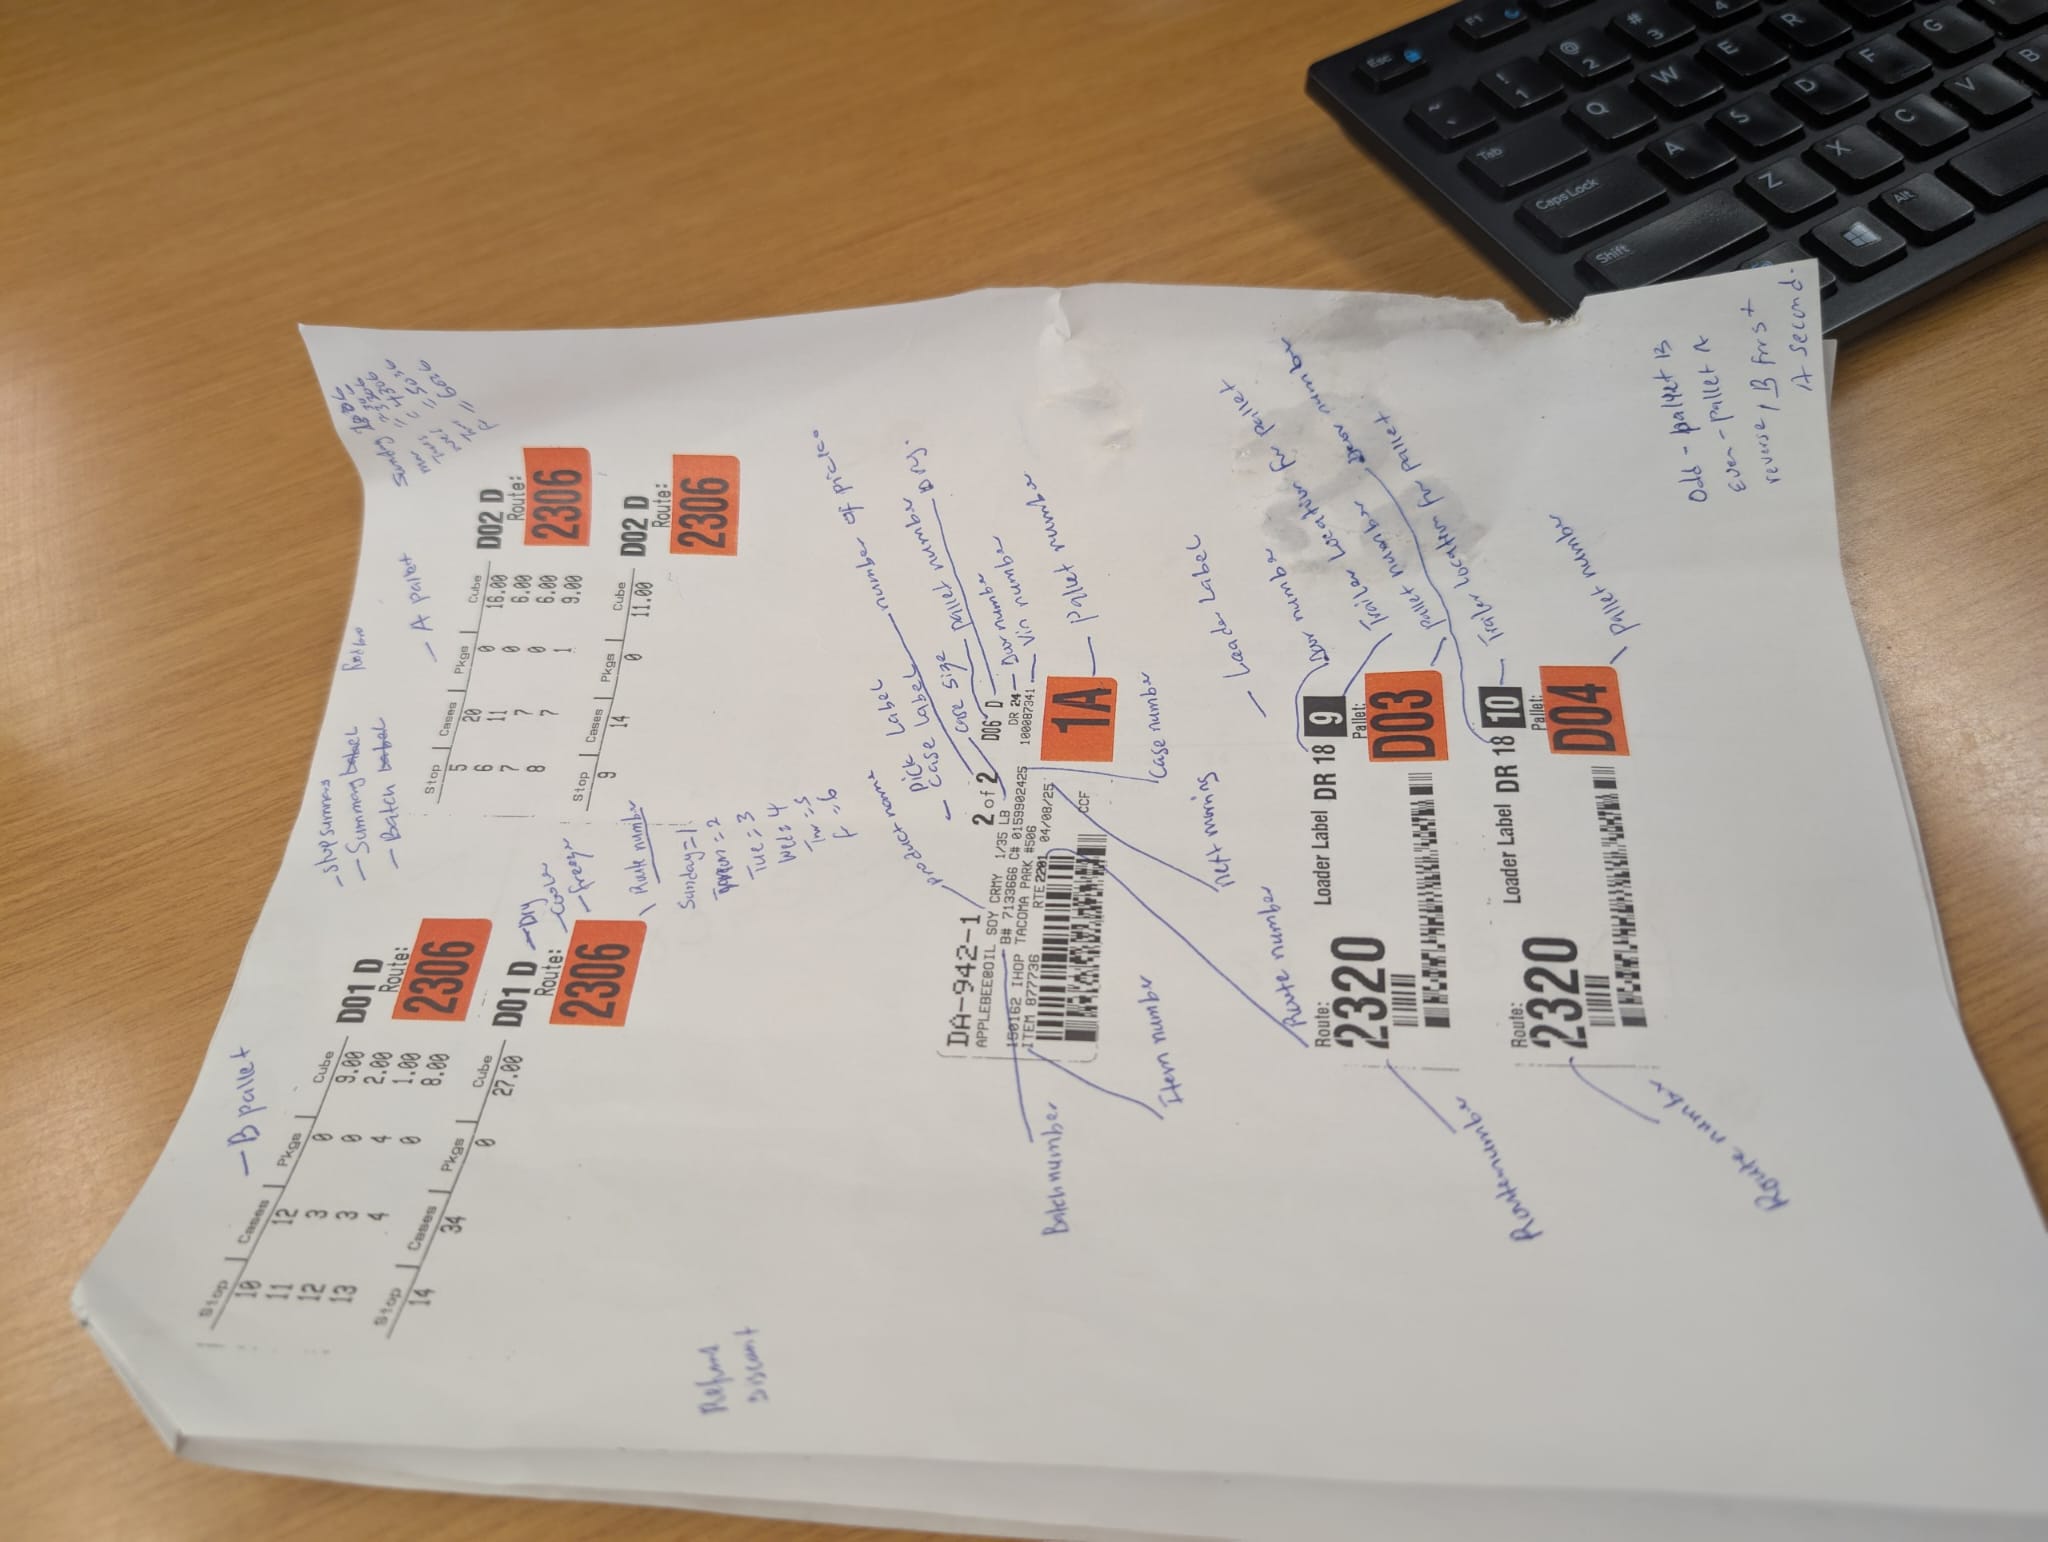 - B pallet
Stop Cases Pkgs Cube
10 12 0 9.00
11 3 0 2.00
12 3 4 1.00
13 4 0 8.00
D01 D
Route:
2306
Stop Cases Pkgs Cube
14 34 0 27.00
D01 D
Route:
2306
- Dry
- cooler
- freezer
Route number
Sunday = 1
= 2
Tue = 3
Wed = 4
= 5
F = 6
- stop summary
- Summary
- Batch label
- A pallet
Stop Cases Pkgs Cube
5 20 0 16.00
6 11 0 6.00
7 7 0 6.00
8 7 1 9.00
D02 D
Route:
2306
Stop Cases Pkgs Cube
9 14 0 11.00
D02 D
Route:
2306
Sunday
Refund
product name
- pick Label
case Label
number of pieces
case size
pallet number
Dry.
Door number
Vin number
- pallet number
DA-942-1
2 of 2
D06 D
APPLEBEEOIL SOY CRMY 1/35 LB
DR 24
150162 B# 7133666 C# 0159902425
100087341
IHOP TACOMA PARK #506
ITEM 877736 RTE 2201 04/08/25
CCF
1A
Case number
Batch number
Item number
Route number
- Loader Label
Door number
Trailer Location for pallet
Pallet number
Door number
Trailer Location for Pallet
Pallet number
Route:
2320
Loader Label DR 18 9
Pallet:
D03
Route number
Route:
2320
Loader Label DR 18 10
Pallet:
D04
Route number
Odd - pallet B
Even - pallet A
reverse / B first
A second.
Esc
F1
~
!
1
@
2
#
3
4
Tab
Q
W
E
R
Caps Lock
A
S
D
F
G
Shift
Z
X
C
V
B
Alt